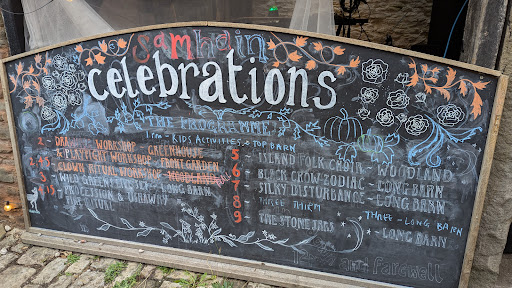 Samhain
celebrations
THE PROGRAMME
1pm - KIDS ACTIVITIES - TOP BARN
2 - WORKSHOP - GREENHOUSE
PLAYFIGHT WORKSHOP - FRONT GARDEN
CLOWN RITUAL WORKSHOP -
- LONG BARN
PROCESSION &
RITUAL
5 ISLAND FOLK CHOIR - WOODLAND
6 BLACK CROW ZODIAC - LONG BARN
7 SILKY DISTURBANCE - LONG BARN
8 THREE THIEM THREE - LONG BARN
9 THE STONE JARS - LONG BARN
and farewell